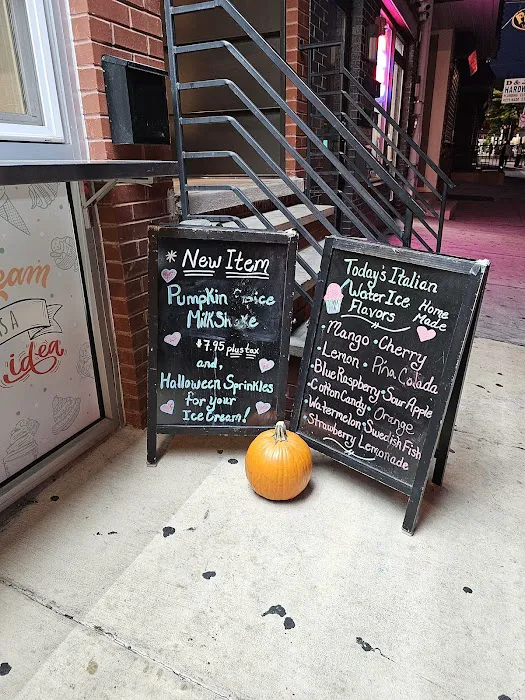 New Item
Pumpkin Spice
MilkShake
$7.95 plus tax
and,
Halloween Sprinkles
for your
Ice Cream!
Today's Italian
Water Ice
Flavors
Home
Made
• Mango • Cherry
• Lemon • Piña Colada
• Blue Raspberry • Sour Apple
• Cotton Candy • Orange
• Watermelon • Swedish Fish
• Strawberry Lemonade
eam
S A
idea
D &
HARDW